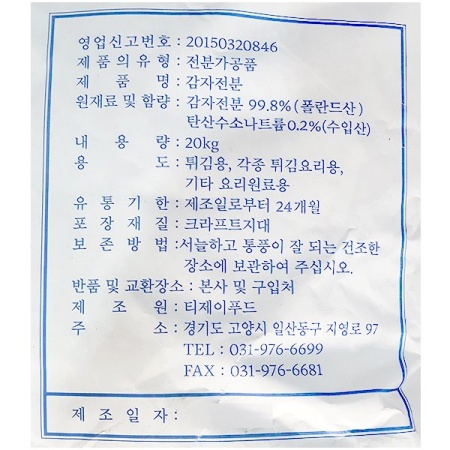 영업신고번호 : 20150320846
제품의유형 : 전분가공품
제품명 : 감자전분
원재료 및 함량 : 감자전분 99.8% (폴란드산)
탄산수소나트륨 0.2% (수입산)
내용량 : 20kg
용도 : 튀김용, 각종 튀김요리용,
기타 요리원료용
유통기한 : 제조일로부터 24개월
포장재질 : 크라프트지대
보존방법 : 서늘하고 통풍이 잘 되는 건조한
장소에 보관하여 주십시오.
반품 및 교환장소 : 본사 및 구입처
제조원 : 티제이푸드
주소 : 경기도 고양시 일산동구 지영로 97
TEL : 031-976-6699
FAX : 031-976-6681
제조일자 :